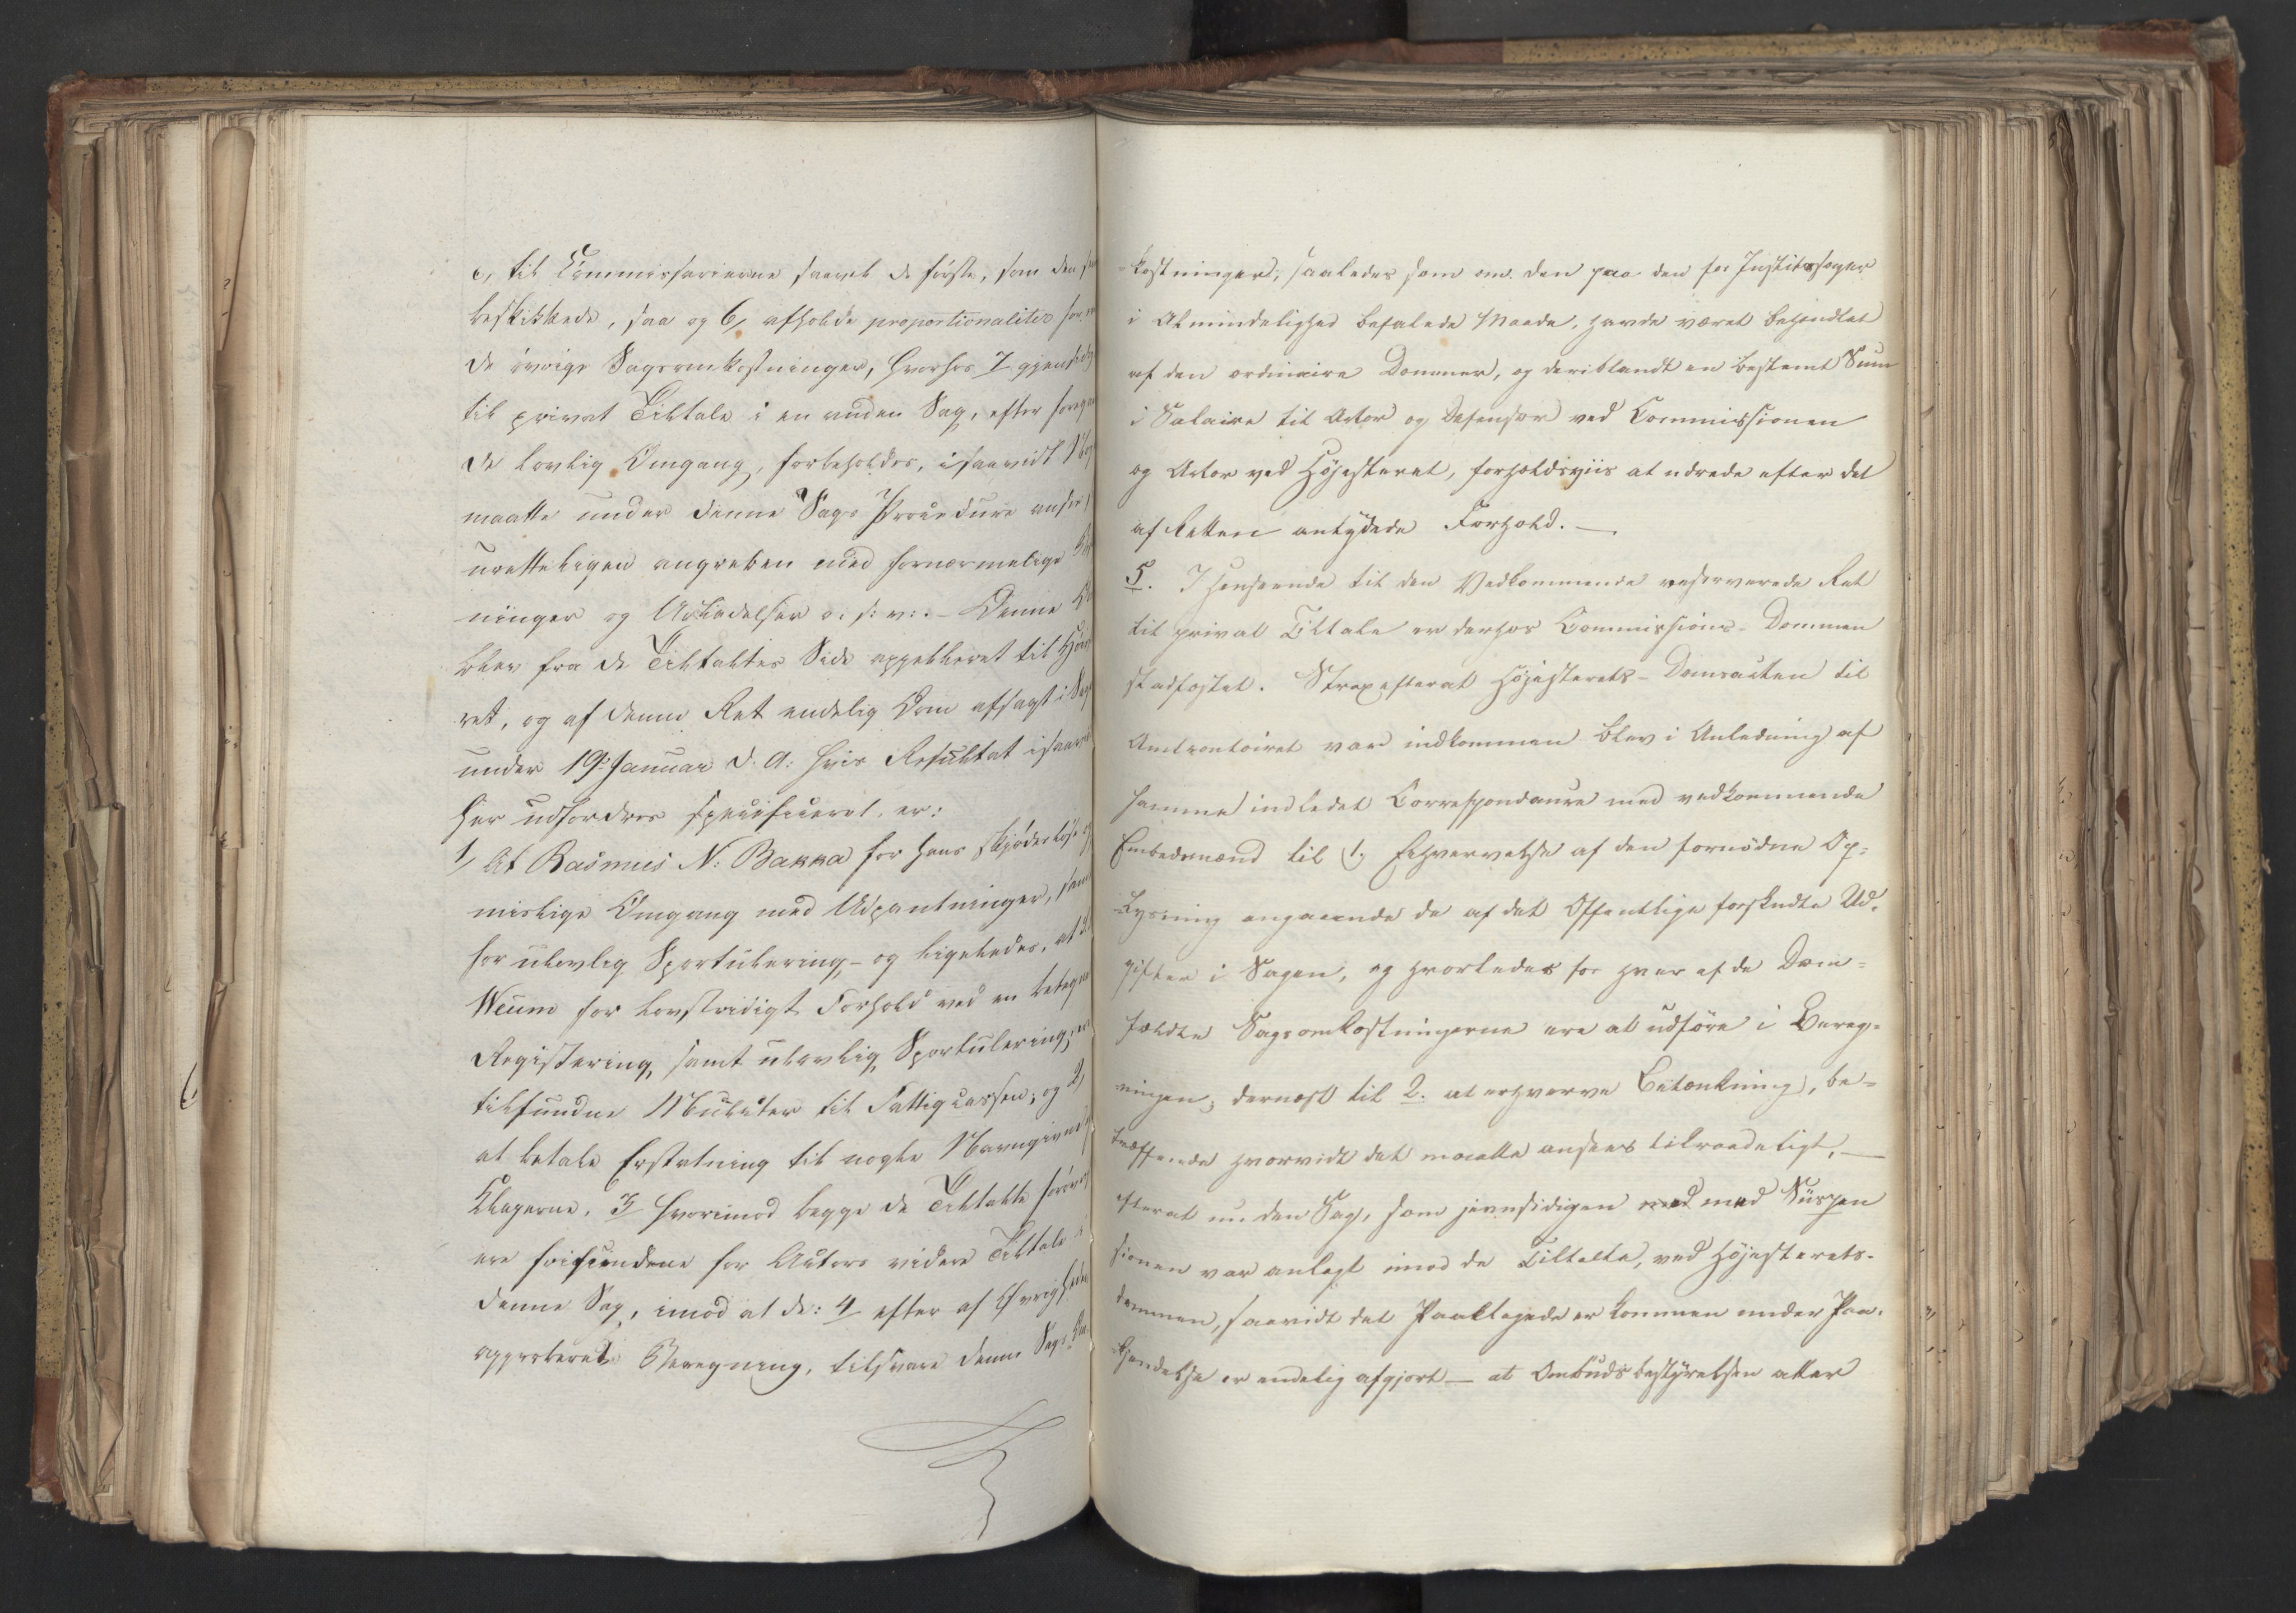 c, til Commissarierne saavel de første, som den
beskikkede, saa og 6, afholde proportionaliter for
de øvrige Sagsomkostninger, hvorhos 7
til privat Tiltale i en anden Sag, efter
de lovlig Omgang, forbeholdes, isaavidt
maatte under denne Sags Procedure
uretteligen angreben med fornærmelige
ninger og Udladelser o: s: v:. – Denne
blev fra de Tiltaltes Side appelleret til
ret, og af denne Ret endelig Dom afsagt i
under 19de Januar d. A: hvis Resultat
her udfordres specificeret, er:
1, At Rasmus N: Bakka for hans skjødesløse
mislige Omgang med Udpantninger,
for ulovlig Sportulering, – og ligeledes, at
Weum for lovstridigt Forhold ved en
Registering, samt ulovlig Sportulering,
tilfundne Mulcter til Fattigcassen; og 2,
at betale Erstatning til nogle
Klagerne, 3, hvorimod begge de Tiltalte
ere frifundene for Actors videre Tiltale i
denne Sag, imod at de: 4 efter af
approberet Beregning, tilsvare denne Sags
-kostninger, saaledes som om den paa den for Justitssager
i Almindelighed befalede Maade, havde været behandlet
af den ordinaire Dommer, og deriblandt en bestemt Sum
i Salaire til Actor og Defensor ved Commissionen
og Actor ved Højesteret, forholdsviis at udrede efter det
af Retten antydede Forhold. —
5. I Henseende til den Vedkommende reserverede Ret
til privat Tiltale er derhos Commissions-Dommen
stadfæstet. Strax efterat Højesterets-Domsacten til
Amtcontoiret var indkommen blev i Anledning af
samme indledet Correspondance med vedkommende
Embedsmænd til 1, Erhvervelse af den fornødne Op-
-lysning angaaende de af det Offentlige forskudte Ud-
gifter i Sagen, og hvorledes for hver af de Dom-
fældte Sagsomkostningerne ere at udføre i Bereg-
ningen; dernæst til 2. at erhverve Betænkning, be-
træffende hvorvidt det maatte ansees tilraadeligt, —
efterat nu den Sag, som jevnsidigen med med Suspen
sionen var anlagt imod de Tiltalte, ved Højesterets-
dommen, saavidt det Paaklagede er kommen under Paa-
-kjendelse er endelig afgjort — at Ombudsbestyrelsen atter